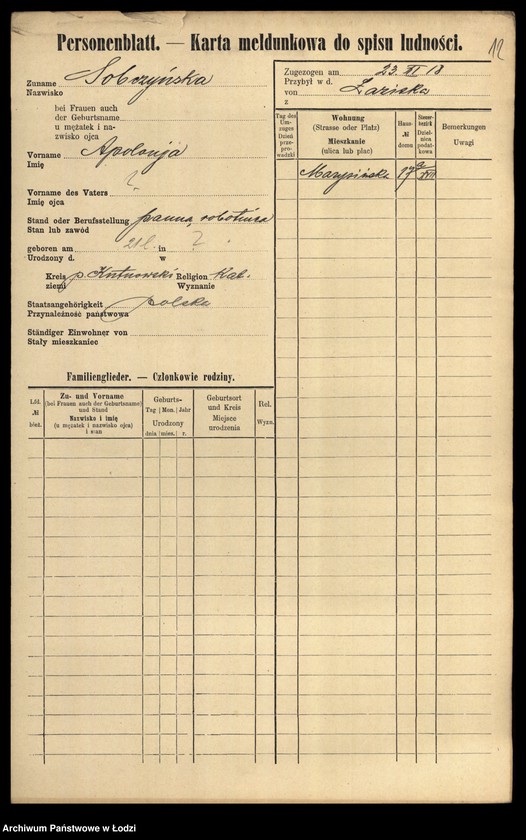 12
Personenblatt. — Karta meldunkowa do spisu ludności.
Zuname Sobczyńska
Nazwisko
bei Frauen auch
der Geburtsname
u mężatek i na-
zwisko ojca
Vorname Apolonja
Imię
Vorname des Vaters ?
Imię ojca
Stand oder Berufsstellung panna, robotnica
Stan lub zawód
geboren am 21 l. in ?
Urodzony d. w
Kreis p. Kutnowski Religion Kat.
ziemi Wyznanie
Staatsangehörigkeit polska
Przynależność państwowa
Ständiger Einwohner von
Stały mieszkaniec
Familienglieder. — Członkowie rodziny.
Lfd. № bież.
Zu- und Vorname
(bei Frauen auch der Geburtsname)
und Stand
Nazwisko i imię
(u mężatek i nazwisko ojca)
i stan
Geburts-
Tag Mon. Jahr
Urodzony
dnia mies. r.
Geburtsort
und Kreis
Miejsce
urodzenia
Rel.
Wyzn.
Zugezogen am 23. XI 18
Przybył w d.
von
z
Tag des
Um-
zuges
Dzień
prze-
prowadzki
Wohnung
(Strasse oder Platz)
Mieszkanie
(ulica lub plac)
Haus-
№
domu
Steuer-
bezirk
Dziel-
nica
podat-
kowa
Bemerkungen
Uwagi
Marysińska 27 XVII
Archiwum Państwowe w Łodzi